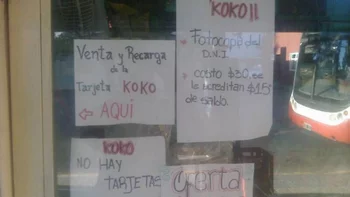 Venta y Recarga
de la
Tarjeta KOKO
AQUÍ
"KOKO"
Fotocopia del
D.N.I.
costo $30.
le acreditan $15
de saldo.
KOKO
NO HAY
TARJETAS